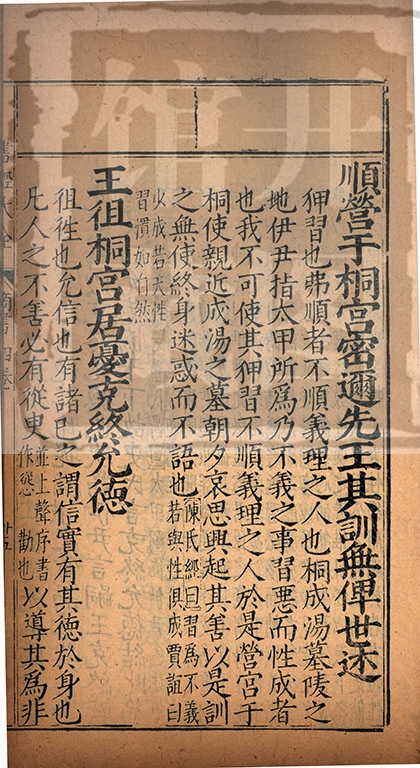 順營于桐宫密邇先王其訓無俾世迷
狎習也弗順者不順義理之人也桐成湯墓陵之
地伊尹指太甲所爲乃不義之事習惡而性成者
也我不可使其狎習不順義理之人於是營宫于
桐使親近成湯之墓朝夕哀思興起其善以是訓
之無使終身迷惑而不語也陳氏經曰習為不義若與性俱成賈誼曰
少成若天性習慣如自然
王徂桐宫居憂克終允德
徂徃也允信也有諸已之謂信實有其德於身也
凡人之不善必有從臾並上聲序書作慫勸也以導其為非